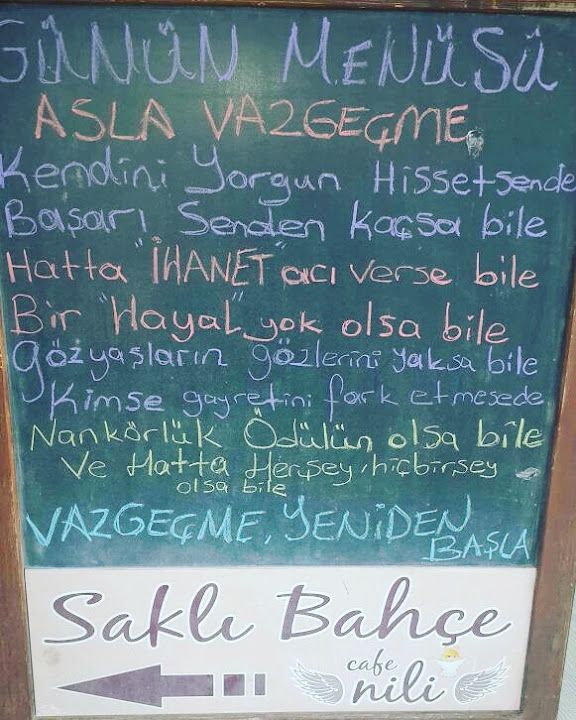 GÜNÜN MENÜSÜ
ASLA VAZGEÇME
Kendini Yorgun Hissetsende
Başarı Senden Kaçsa bile
Hatta "İHANET" acı verse bile
Bir "Hayal" yok olsa bile
gözyaşların gözlerini yaksa bile
Kimse gayretini fark etmesede
Nankörlük Ödülün olsa bile
Ve Hatta Herşey, hiçbirşey
olsa bile
VAZGEÇME, YENİDEN
BAŞLA
Saklı Bahçe
cafe
nili